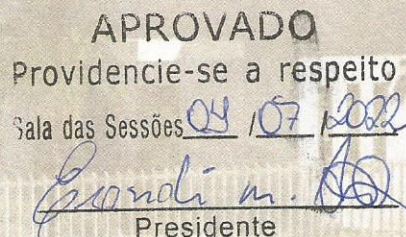 APROVADO
Providencie-se a respeito
Sala das Sessões 04 / 07 / 2022
Presidente